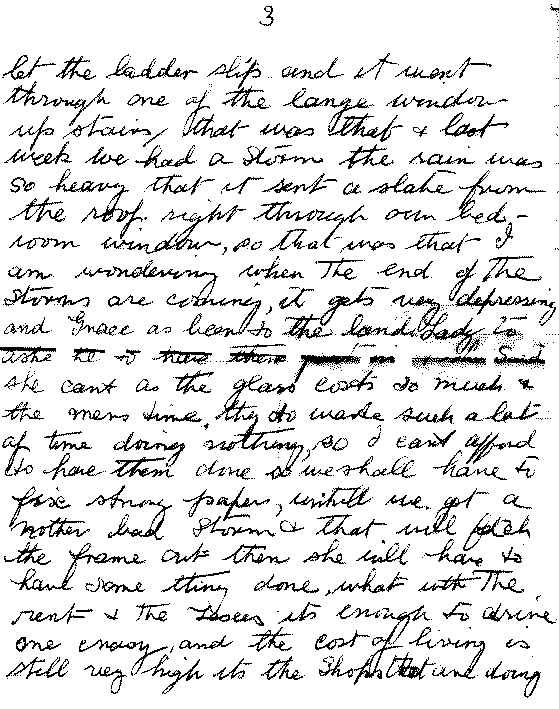 3
let the ladder slip and it went
through one of the lange window
up stairs, that was that & last
week we had a storm the rain was
so heavy that it sent a slate from
the roof right through our bed-
room window, so that was that I
am wondering when the end of the
storms are coming, it gets very depressing
and Grace as been to the land Lady to
ashe he to have them put in
she cant as the glass costs so much &
the mens time, they do waste such a lot
of time doing nothing, so I cant afford
to have them done so we shall have to
fix strong paper, untill we get a
nother bad Storm & that will fetch
the frame out then she will have to
have some thing done, what with The
rent & The its enough to drive
one crasy, and the cost of living is
still very high its the Shops that are doing